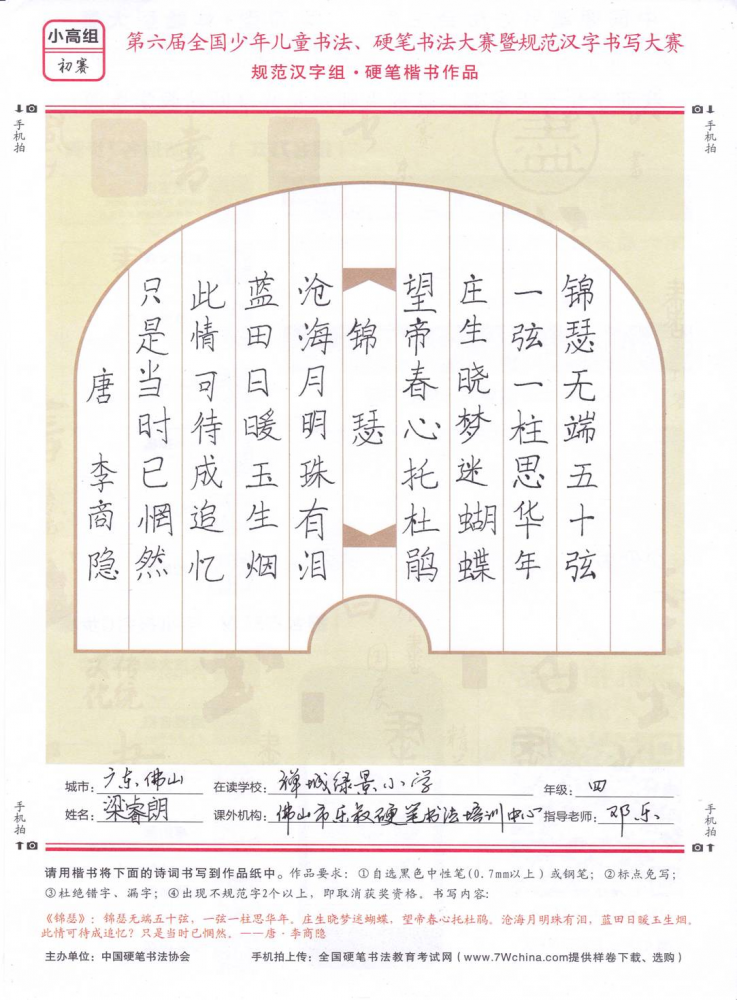 小高组
初赛
第六届全国少年儿童书法、硬笔书法大赛暨规范汉字书写大赛
规范汉字组·硬笔楷书作品
手机拍
手机拍
锦瑟无端五十弦
一弦一柱思华年
庄生晓梦迷蝴蝶
望帝春心托杜鹃
锦瑟
沧海月明珠有泪
蓝田日暖玉生烟
此情可待成追忆
只是当时已惘然
唐 李商隐
城市: 广东佛山 在读学校: 禅城绿景小学 年级: 四
姓名: 梁睿朗 课外机构: 佛山市乐毅硬笔书法培训中心 指导老师: 邓乐
手机拍
手机拍
请用楷书将下面的诗词书写到作品纸中。作品要求：①自选黑色中性笔(0.7mm以上）或钢笔；②标点免写；
③杜绝错字、漏字；④出现不规范字2个以上，即取消获奖资格。书写内容：
《锦瑟》：锦瑟无端五十弦，一弦一柱思华年。庄生晓梦迷蝴蝶，望帝春心托杜鹃。沧海月明珠有泪，蓝田日暖玉生烟。
此情可待成追忆？只是当时已惘然。——唐·李商隐
主办单位：中国硬笔书法协会 手机拍上传：全国硬笔书法教育考试网（www.7Wchina.com提供样卷下载、选购）